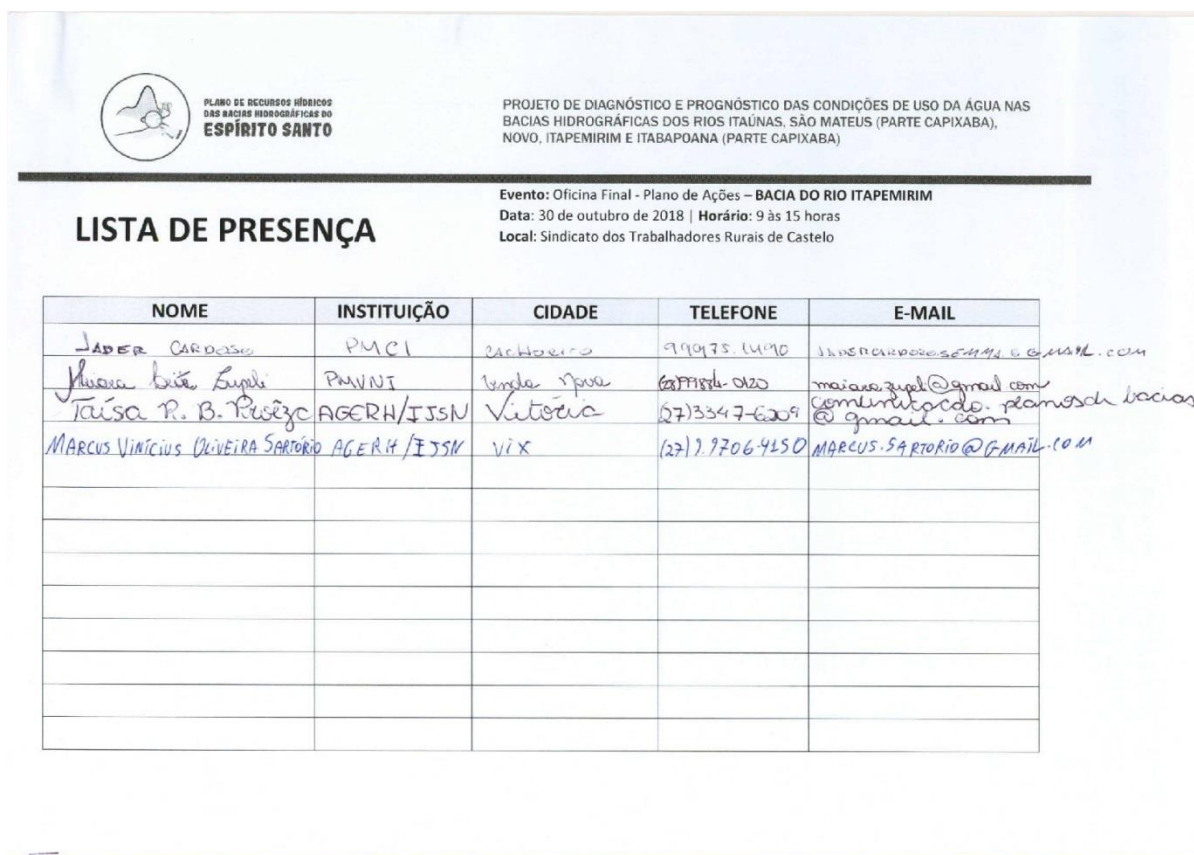 PLANO DE RECURSOS HÍDRICOS
DAS BACIAS HIDROGRÁFICAS DO
ESPÍRITO SANTO
PROJETO DE DIAGNÓSTICO E PROGNÓSTICO DAS CONDIÇÕES DE USO DA ÁGUA NAS
BACIAS HIDROGRÁFICAS DOS RIOS ITAÚNAS, SÃO MATEUS (PARTE CAPIXABA),
NOVO, ITAPEMIRIM E ITABAPOANA (PARTE CAPIXABA)
LISTA DE PRESENÇA
Evento: Oficina Final - Plano de Ações – BACIA DO RIO ITAPEMIRIM
Data: 30 de outubro de 2018 | Horário: 9 às 15 horas
Local: Sindicato dos Trabalhadores Rurais de Castelo
NOME INSTITUIÇÃO CIDADE TELEFONE E-MAIL
JADER CARDOSO PMCI CACHOEIRO 99975.1490
PMVNI Venda Nova
Taísa R. B. AGERH/IJSN Vitória (27)3347-6209 comunicacao.planosde bacias
@gmail.com
MARCUS VINÍCIUS OLIVEIRA SARTÓRIO AGERH/IJSN VIX (27)9.9706-4150 MARCUS.SARTORIO@GMAIL.COM